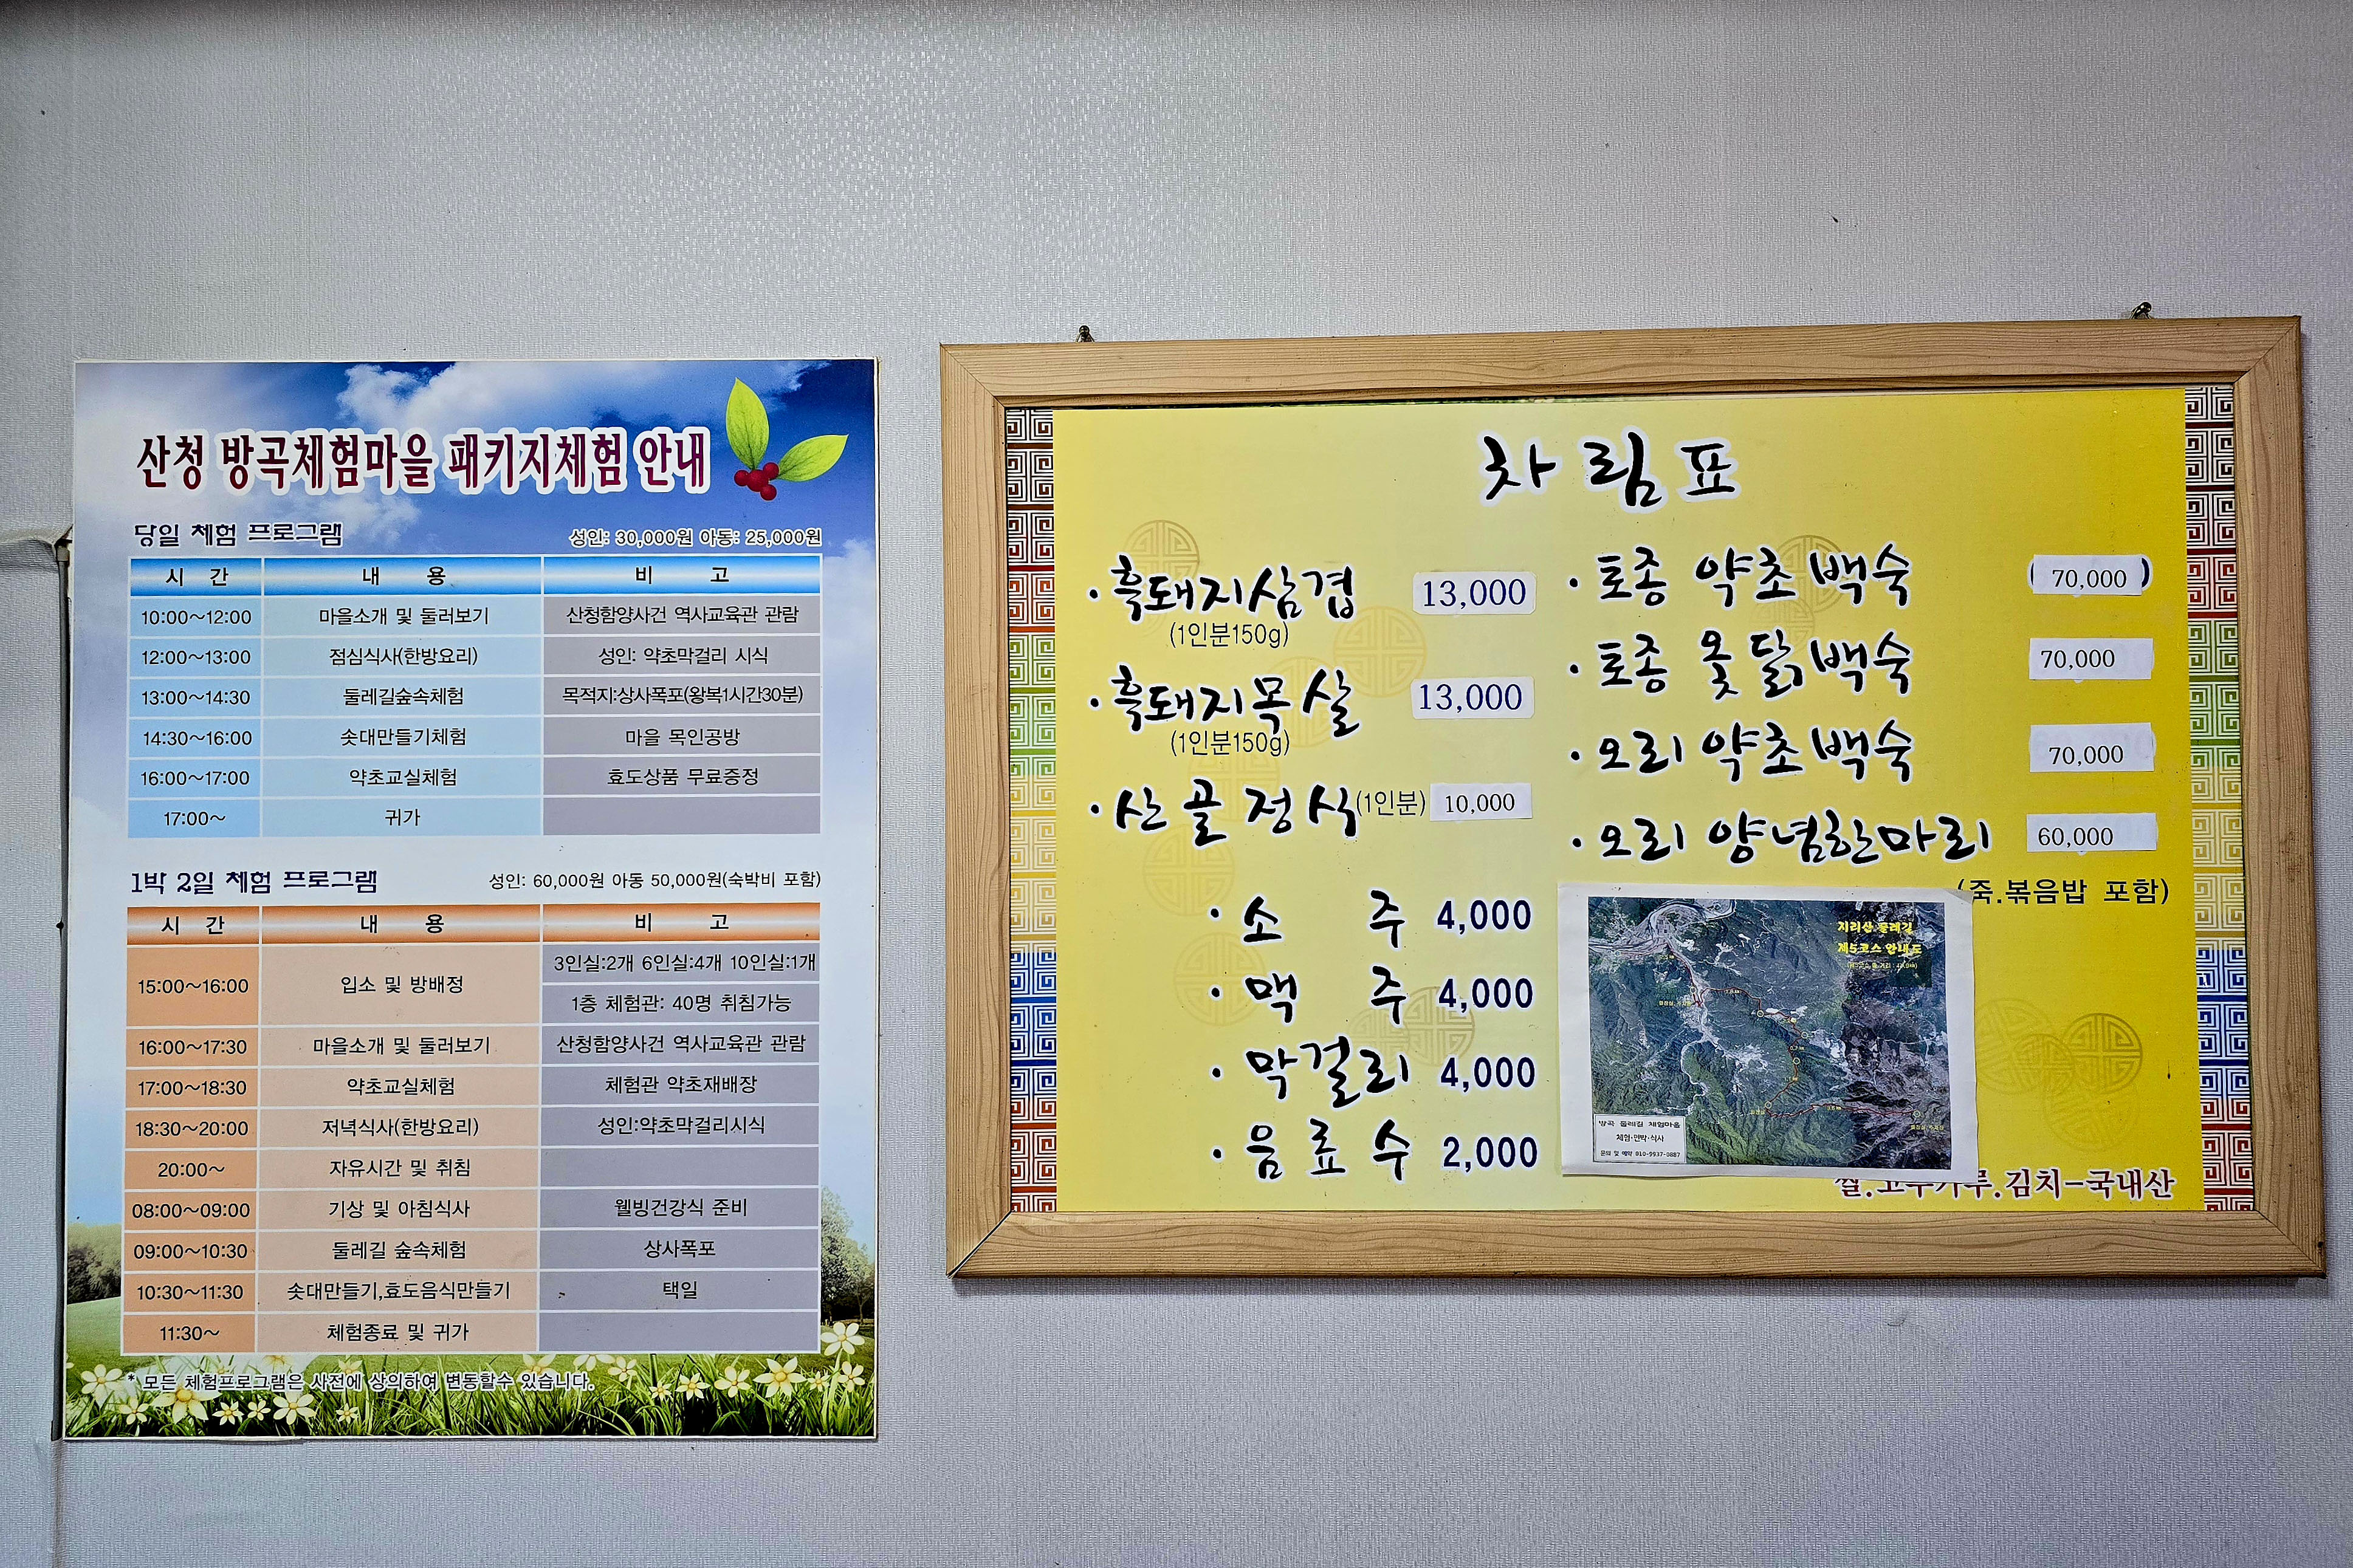 산청 방곡체험마을 패키지체험 안내
당일 체험 프로그램 성인: 30,000원 아동: 25,000원
시 간 내 용 비 고
10:00~12:00 마을소개 및 둘러보기 산청함양사건 역사교육관 관람
12:00~13:00 점심식사(한방요리) 성인: 약초막걸리 시식
13:00~14:30 둘레길숲속체험 목적지:상사폭포(왕복1시간30분)
14:30~16:00 솟대만들기체험 마을 목인공방
16:00~17:00 약초교실체험 효도상품 무료증정
17:00~ 귀가
1박 2일 체험 프로그램 성인: 60,000원 아동 50,000원(숙박비 포함)
시 간 내 용 비 고
15:00~16:00 입소 및 방배정 3인실:2개 6인실:4개 10인실:1개
1층 체험관: 40명 취침가능
16:00~17:30 마을소개 및 둘러보기 산청함양사건 역사교육관 관람
17:00~18:30 약초교실체험 체험관 약초재배장
18:30~20:00 저녁식사(한방요리) 성인:약초막걸리시식
20:00~ 자유시간 및 취침
08:00~09:00 기상 및 아침식사 웰빙건강식 준비
09:00~10:30 둘레길 숲속체험 상사폭포
10:30~11:30 솟대만들기,효도음식만들기 택일
11:30~ 체험종료 및 귀가
* 모든 체험프로그램은 사전에 상의하여 변동할수 있습니다.
차림표
· 흑돼지삼겹 13,000
(1인분150g)
· 흑돼지목살 13,000
(1인분150g)
· 산골정식(1인분) 10,000
· 소주 4,000
· 맥주 4,000
· 막걸리 4,000
· 음료수 2,000
· 토종 약초백숙 70,000
· 토종 옻닭백숙 70,000
· 오리 약초백숙 70,000
· 오리 양념한마리 60,000
(죽.볶음밥 포함)
지리산 둘레길
제5코스 안내도
방곡 둘레길 체험마을
체험·민박·식사
문의 및 예약 010-9937-0887
쌀.고추가루.김치-국내산